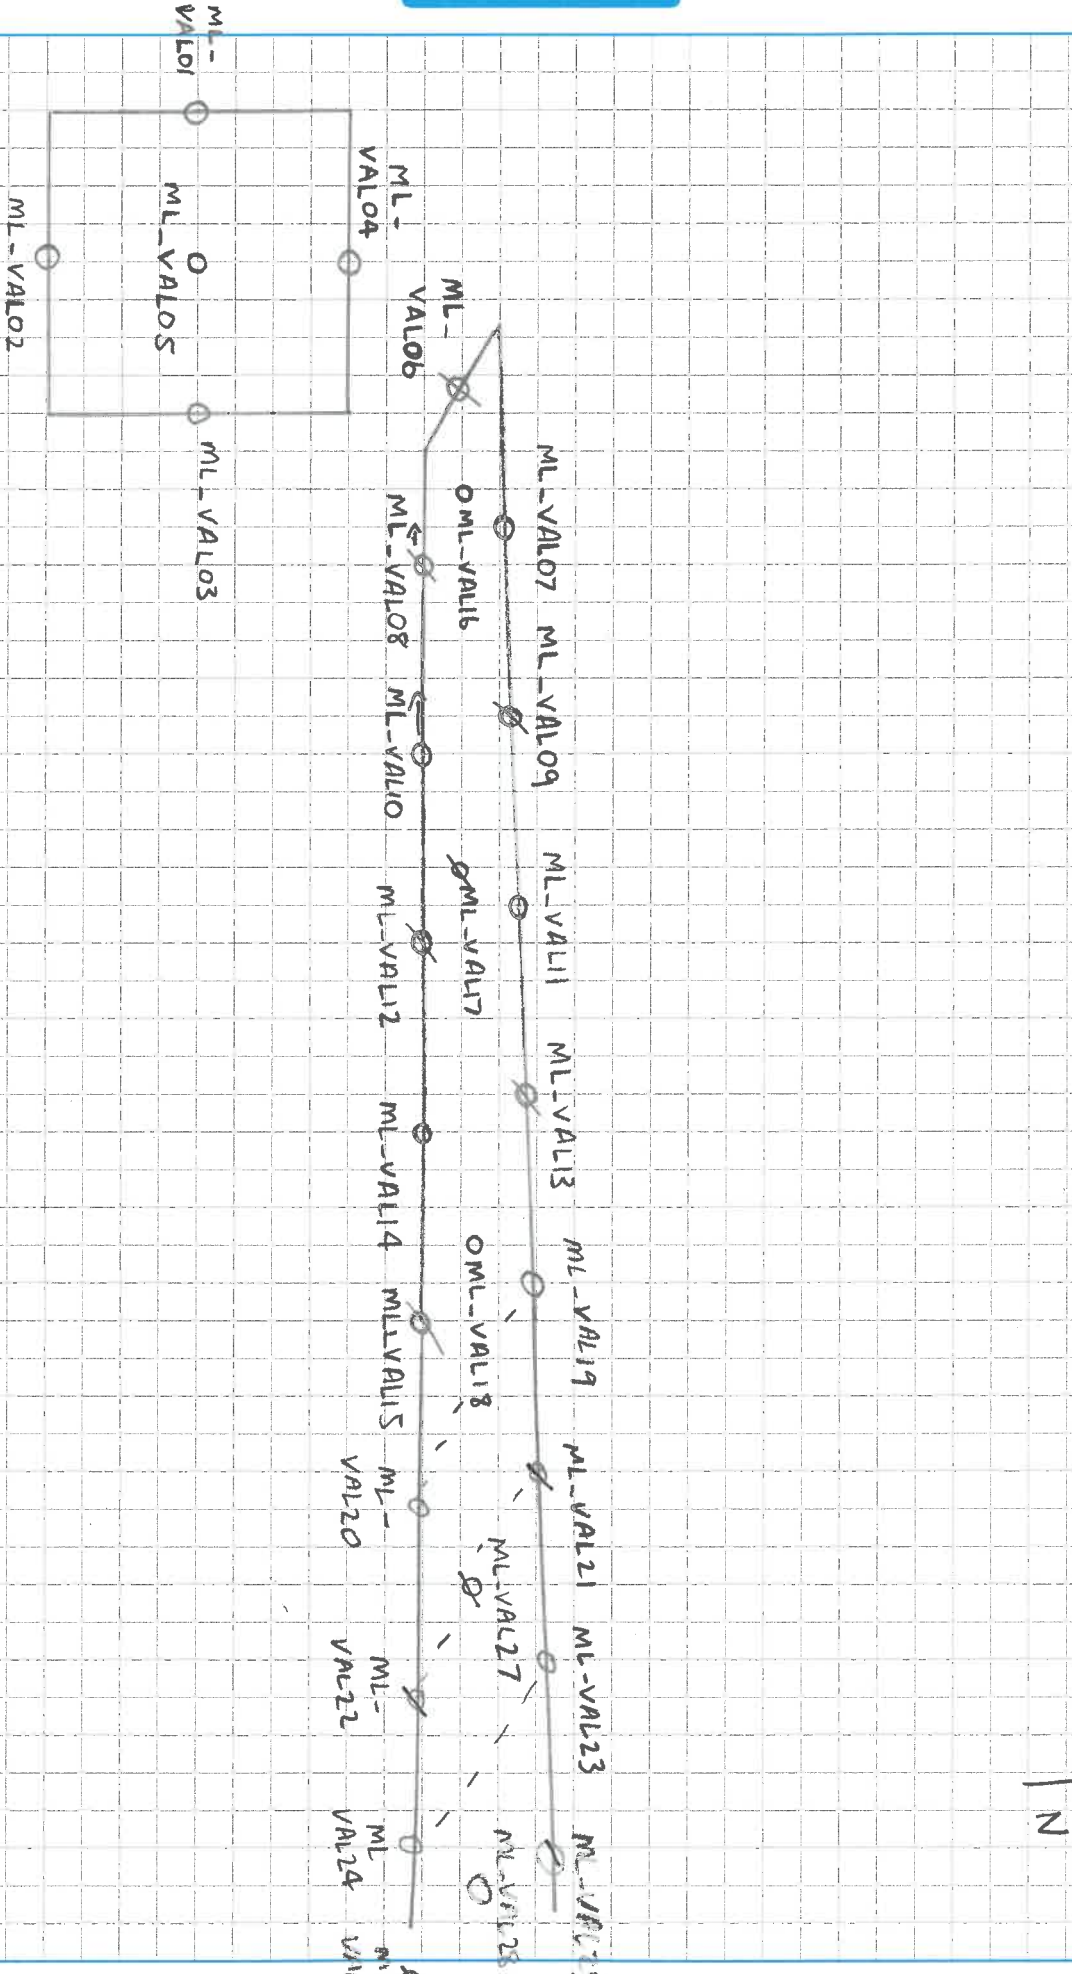 ML-
VAL01
ML-
VAL04
ML_VAL05
ML-VAL02
ML_VAL03
ML-
VAL06
ML_VAL07
ML_VAL16
ML_VAL08
ML_VAL09
ML_VAL10
ML_VAL11
ML_VAL17
ML_VAL12
ML_VAL13
ML_VAL14
ML_VAL19
ML_VAL18
ML_VAL15
ML_VAL21
ML-
VAL20
ML_VAL27
ML-VAL23
ML-
VAL22
ML
VAL24
ML-VAL28
N